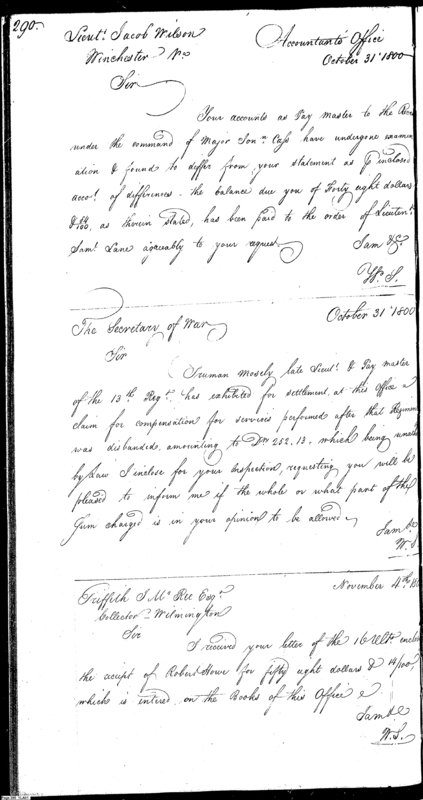 290.
Lieut. Jacob Wilson
Winchester Va
Accountants Office
October 31st 1800
Sir
Your accounts as Pay master to the
under the command of Major Jonn. Cass have undergone examin
ation & found to differ from your statement as pr inclosed
accot. of differences - the balance due you of Forty eight dollars
as therein stated, has been paid to the order of Lieutent.
Saml. Lane agreeably to your request
I am &c.
W. S.
October 31st 1800
The Secretary of War
Sir
Truman Mosely late Lieut. & Pay master
of the 13th Regt. has exhibited for settlement, at this Office a
claim for compensation for services performed after that Regiment
was disbanded, amounting to Drs 252.13. which being
by Law I inclose for your inspection, requesting you will be
pleased to inform me if the whole or what part of the
Sum charged is in your opinion to be allowed
I am &c.
W. S
November 4th
Griffith J. Mc Ree Esqr.
Collector - Wilmington
Sir
I received your letter of the 16 Ulto.
the receipt of Robert Howe for fifty eight dollars &
which is entered on the Books of this Office
I am &c
W. S.